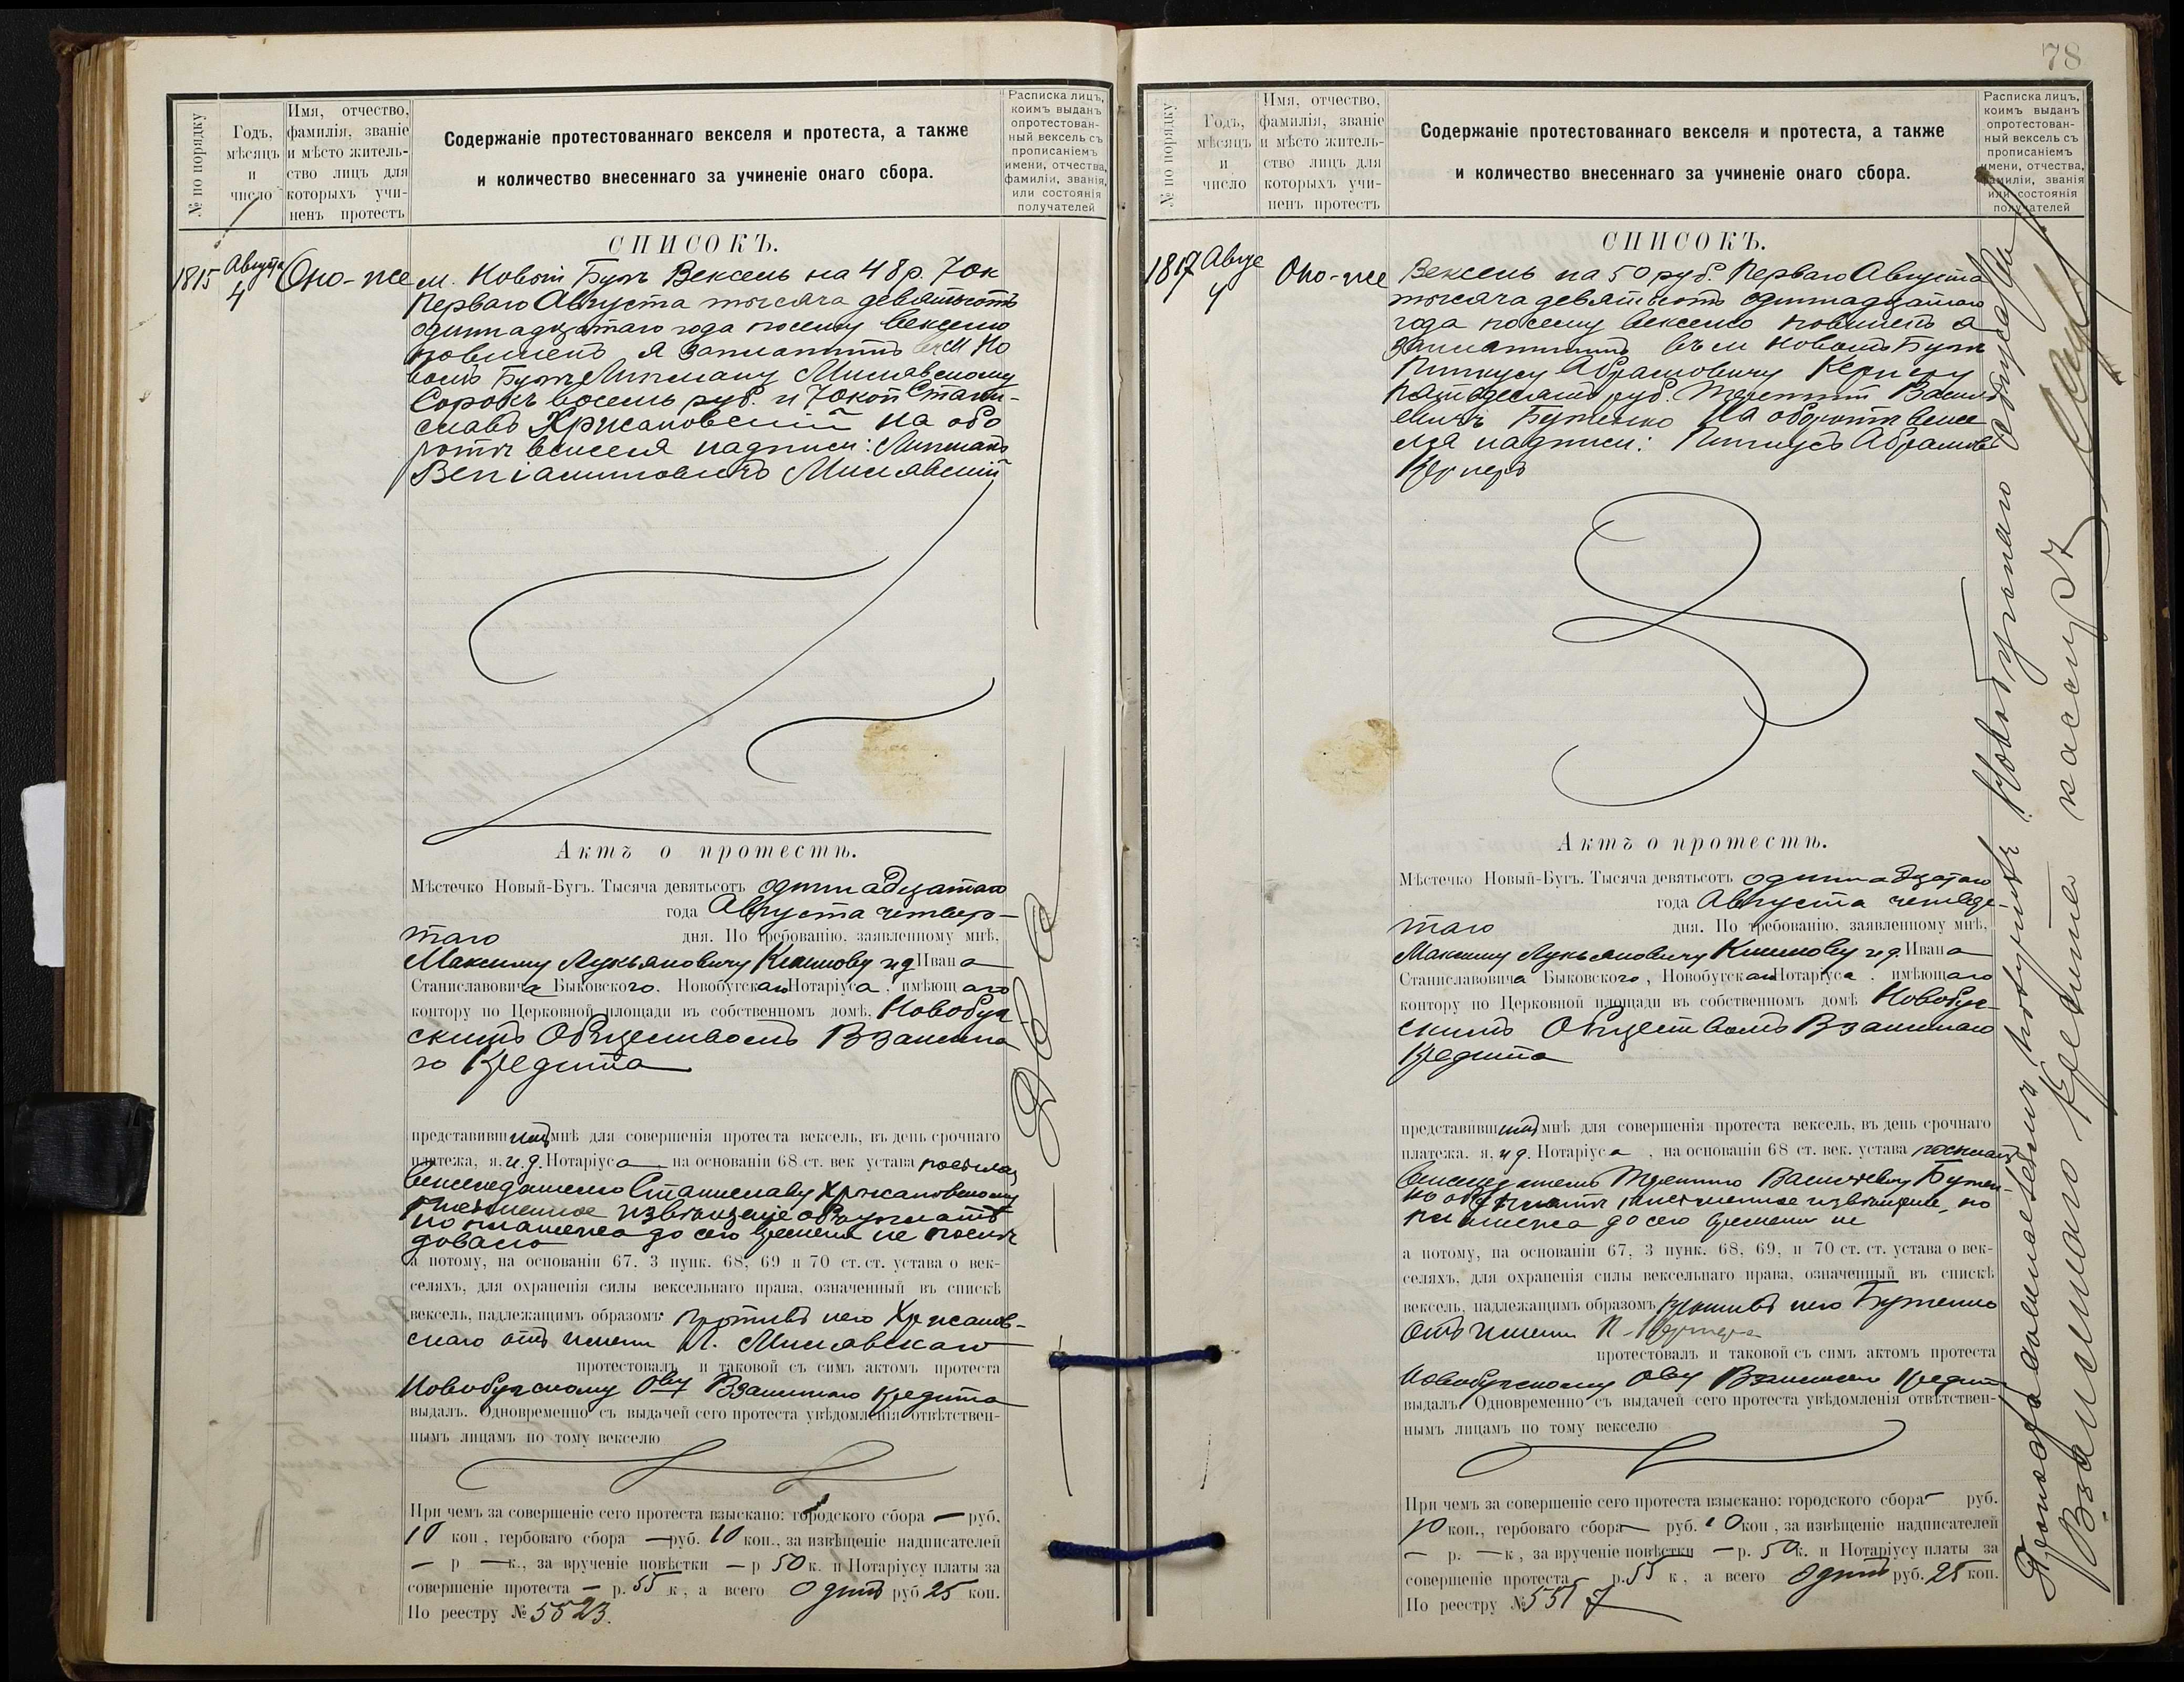 № по порядку
Годъ,
мѣсяцъ
и
число
Имя, отчество,
фамилія, званіе
и мѣсто житель-
ство лицъ для
которыхъ учи-
ненъ протестъ
Содержаніе протестованнаго векселя и протеста, а также
и количество внесеннаго за учиненіе онаго сбора.
Расписка лицъ,
коимъ выданъ
опротестован-
ный вексель съ
прописаніемъ
имени, отчества,
фамиліи, званія,
или состоянія
получателей
СПИСОКЪ.
1815
Августа
4
Оно-же
м. Новый Бугъ Вексель на 48 р. 70 к
Перваго Августа тысяча девятьсотъ
одиннадцатаго года по сему векселю
повиненъ я заплатить въ м Но
вомъ Бугѣ Липману Милявскому
Сорокъ восемь руб. и 70 коп Стани-
славъ Хржановскій На обо
ротѣ векселя надписи: Липманъ
Веніаминовичъ Милявскій
Актъ о протестѣ.
Мѣстечко Новый-Бугъ. Тысяча девятьсотъ одиннадцатаго
года Августа четвер-
таго дня. По требованію, заявленному мнѣ,
Максиму Лукьяновичу Климову и д Ивана
Станиславовича Быковскаго, Новобугскаго Нотаріуса, имѣющаго
контору по Церковной площади въ собственномъ домѣ, Новобуг
скимъ Обществомъ Взаимна
го Кредита
представившимъ мнѣ для совершенія протеста вексель, въ день срочнаго
платежа, я, и.д. Нотаріуса на основаніи 68 ст. век устава послалъ
векселедателю Станиславу Хржановскому
письменное извѣщеніе объ уплатѣ
но платежа до сего времени не послѣ
довало
а потому, на основаніи 67, 3 пунк. 68, 69 и 70 ст. ст. устава о век-
селяхъ, для охраненія силы вексельнаго права, означенный въ спискѣ
вексель, надлежащимъ образомъ противъ него Хржанов-
скаго отъ имени Л. Милявскаго
протестовалъ и таковой съ симъ актомъ протеста
Новобугскому О-ву Взаимнаго Кредита
выдалъ. Одновременно съ выдачей сего протеста увѣдомленія отвѣтствен-
нымъ лицамъ по тому векселю
При чемъ за совершеніе сего протеста взыскано: городского сбора — руб.
10 коп, гербоваго сбора — руб. 10 коп., за извѣщеніе надписателей
— р — к., за врученіе повѣстки — р 50 к. и Нотаріусу платы за
совершеніе протеста — р. 55 к, а всего Одинъ руб 25 коп.
По реестру № 5523.
— Два —
78
№ по порядку
Годъ,
мѣсяцъ
и
число
Имя, отчество,
фамилія, званіе
и мѣсто житель-
ство лицъ для
которыхъ учи-
ненъ протестъ
Содержаніе протестованнаго векселя и протеста, а также
и количество внесеннаго за учиненіе онаго сбора.
Расписка лицъ,
коимъ выданъ
опротестован-
ный вексель съ
прописаніемъ
имени, отчества,
фамиліи, званія
или состоянія
получателей
СПИСОКЪ.
1817
4
Оно-же
Вексель на 50 руб. Перваго Августа
тысяча девятьсотъ одиннадцатаго
года по сему векселю повиненъ я
заплатить въ м Новомъ Бугѣ
Пинкусу Абрамовичу Кернеру
пятьдесятъ руб. Терентій Василь
евичъ Бутенко На оборотѣ вексе
ля надписи: Пинкусъ Абрамовъ
Кернеръ
Актъ о протестѣ.
Мѣстечко Новый-Бугъ. Тысяча девятьсотъ одиннадцатаго
года Августа четвер-
таго дня. По требованію, заявленному мнѣ,
Максиму Лукьяновичу Климову и д. Ивана
Станиславовича Быковскаго, Новобугскаго Нотаріуса, имѣющаго
контору по Церковной площади въ собственномъ домѣ Новобуг
скимъ Обществомъ Взаимнаго
Кредита
представившимъ мнѣ для совершенія протеста вексель, въ день срочнаго
платежа. я, и д. Нотаріуса, на основаніи 68 ст. век. устава послалъ
векселедателю Терентію Васильевичу Бутен-
ко объ уплатѣ письменное извѣщеніе, но
платежа до сего времени не
а потому, на основаніи 67, 3 пунк. 68, 69, и 70 ст. ст. устава о век-
селяхъ, для охраненія силы вексельнаго права, означенный въ спискѣ
вексель, надлежащимъ образомъ противъ него Бутенко
отъ имени П. Кернера
протестовалъ и таковой съ симъ актомъ протеста
Новобугскому О-ву Взаимнаго Кредита
выдалъ. Одновременно съ выдачей сего протеста увѣдомленія отвѣтствен-
нымъ лицамъ по тому векселю
При чемъ за совершеніе сего протеста взыскано: городского сбора — руб.
10 коп., гербоваго сбора — руб. 10 коп, за извѣщеніе надписателей
— р. — к, за врученіе повѣстки — р. 50 к. и Нотаріусу платы за
совершеніе протеста р. 55 к, а всего Одинъ руб. 25 коп.
По реестру №
получилъ Новобугскаго Общества
Взаимнаго Кредита кассиръ